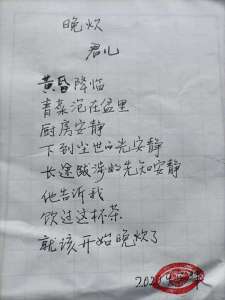 晚炊
君儿
黄昏降临
青菜泡在盆里
厨房安静
下到尘世的光安静
长途跋涉的先知安静
他告诉我
饮过这杯茶
就该开始晚炊了
202